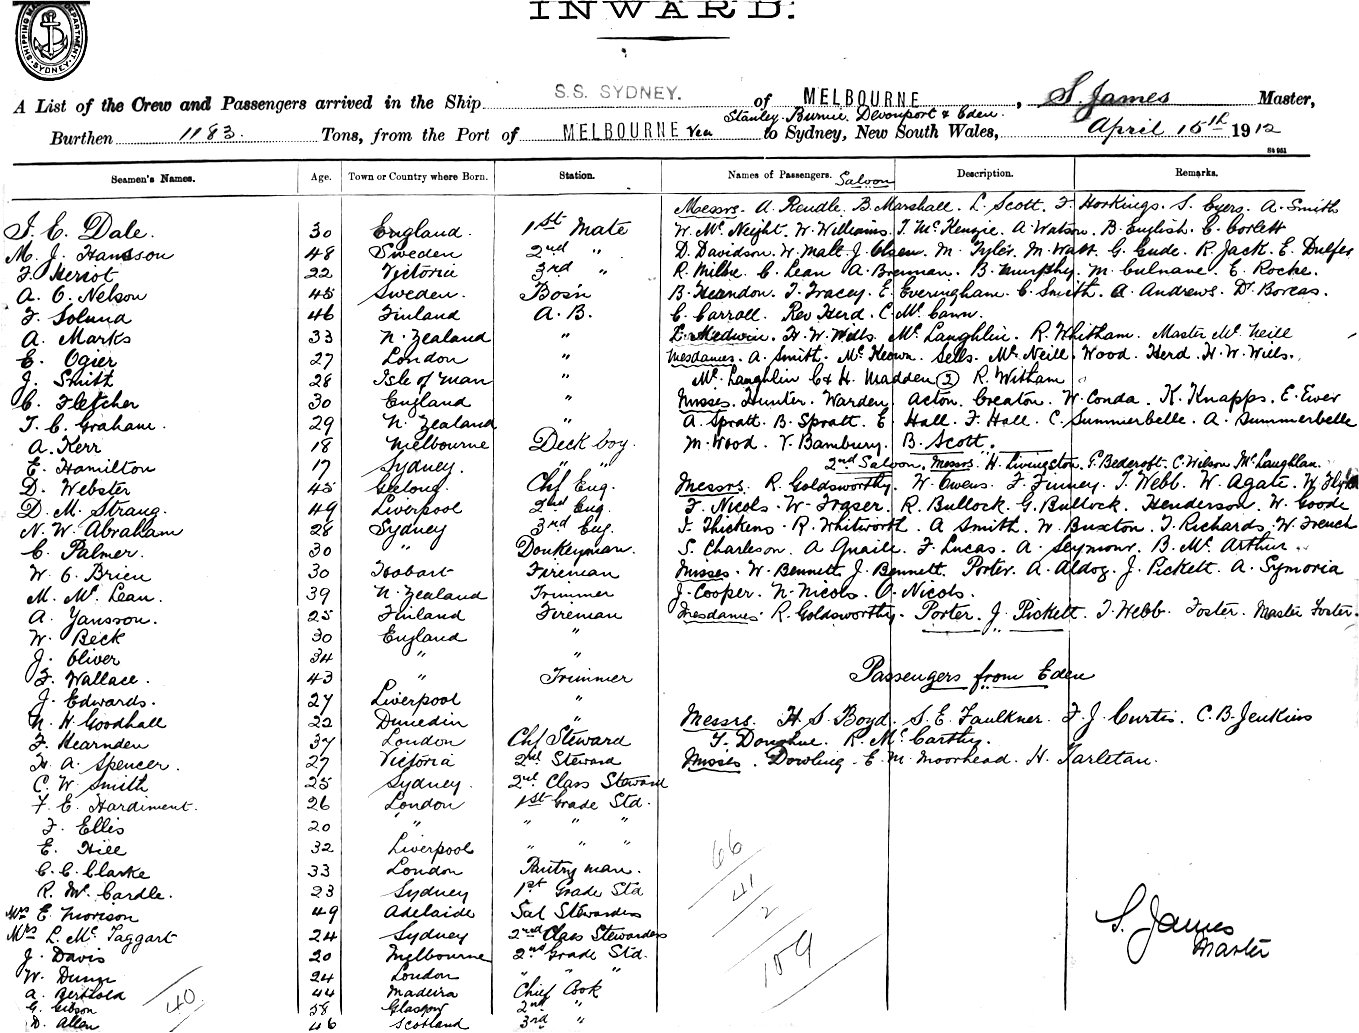 INWARD:
SHIPPING MASTER'S DEPARTMENT. SYDNEY.
A List of the Crew and Passengers arrived in the Ship S.S. SYDNEY. of MELBOURNE, S. James Master,
Stanley Burnie Devonport & Eden.
Burthen 1183. Tons, from the Port of MELBOURNE via to Sydney, New South Wales, April 15th 1912
St 951
Seamen's Names. Age. Town or Country where Born. Station. Names of Passengers. Saloon Description. Remarks.
Messrs. A. Rendle. B. Marshall. L. Scott. F. Hockings. S. Eyers. A. Smith
J. C. Dale. 30 England. 1st Mate W. McNeight. W. Williams. T. McKenzie. A. Watson. B. English. C. Corlett
M. J. Hansson 48 Sweden 2nd " D. Davidson. W. Malt. J. Olsen. M. Tyler. M. Watt. G. Gude. R. Jack. E. Dulfer
F. Heriot 22 Victoria 3rd " R. Milne. C. Lean. A. Brennan. B. Murphy. M. Culnane. E. Roche.
A. O. Nelson 45 Sweden. Bosn B. Heandon. T. Tracey. E. Everingham. C. Smith. A. Andrews. Dr. Boreas.
F. Solund 46 Finland A. B. C. Carroll. Rev Herd. C. McCann.
A. Marks 33 N. Zealand " L. Medwin. H. W. Wills. McLaughlin. R. Whitham. Master McNeill
E. Ogier 27 London " Mesdames. A. Smith. McKeown. Sells. McNeill. Wood. Herd. H. W. Wills.
J. Smith 28 Isle of Man " McLaughlin C & H. Madden (2) R. Witham
C. Fletcher 30 England " Misses. Hunter. Warden. Acton. Creaton. W. Conda. K. Knapps. E. Ever
T. C. Graham. 29 N. Zealand " A. Spratt. B. Spratt. E. Hall. F. Hall. C. Summerbelle. A. Summerbelle
A. Kerr 18 Melbourne Deck boy. M. Wood. V. Bambury. B. Scott.
E. Hamilton 17 Sydney. " " 2nd Saloon. Messrs. H. Livingston. G. Bedcroft. C. Wilson. McLaughlan.
D. Webster 45 Geelong. Chf Eng. Messrs. R. Goldsworthy. W. Owens. F. Finney. T. Webb. W. Agate.
D. M. Strang. 49 Liverpool 2nd Eng. F. Nicols. W. Fraser. R. Bullock. G. Bullock. Henderson. W. Goode
N. W. Abraham 28 Sydney 3rd Eng. J. Thickens. R. Whitworth. A. Smith. W. Buxton. T. Richards. W. French
C. Palmer. 30 " Donkeyman. S. Charleson. A. Quaile. F. Lucas. A. Seymour. B. McArthur.
W. O. Brien 30 Hobart Fireman Misses. W. Bennett. J. Bennett. Porter. A. Aldog. J. Pickett. A. Symoria
M. McLean. 39 N. Zealand Trimmer J. Cooper. N. Nicols. O. Nicols.
A. Yansson. 25 Finland Fireman Mesdames. R. Goldsworthy. Porter. J. Pickett. T. Webb. Foster. Master Foster.
W. Beck 30 England "
J. Oliver 34 " "
F. Wallace. 43 " Trimmer Passengers from Eden
J. Edwards. 27 Liverpool "
N. H. Goodhall 22 Dunedin " Messrs. H. S. Boyd. S. E. Faulkner. F. J. Curtis. C. B. Jenkins
F. Hearnden 37 London Chf Steward T. Donohue. R. McCarthy.
H. A. Spencer. 27 Victoria 2nd Steward Misses. Dowling. E. M. Moorhead. H. Tarleton.
C. W. Smith 25 Sydney. 2nd Class Steward
F. E. Hardiment. 26 London 1st Grade Std.
F. Ellis 20 " " " "
E. Hill 32 Liverpool " " "
C. C. Clarke 33 London Pantryman.
R. McCardle. 23 Sydney 1st Grade Std
Mrs E. Morison 49 Adelaide Sal Stewardess
Mrs L. McTaggart 24 Sydney 2nd Class Stewardess
J. Davis 20 Melbourne 2nd Grade Std.
W. Dunn 24 London " " "
A. Berthold 44 Madeira Chief Cook
G. Gibson 58 Glasgow 2nd "
D. Allan 46 Scotland 3rd "
40
66
41
2
109
S. James
Master